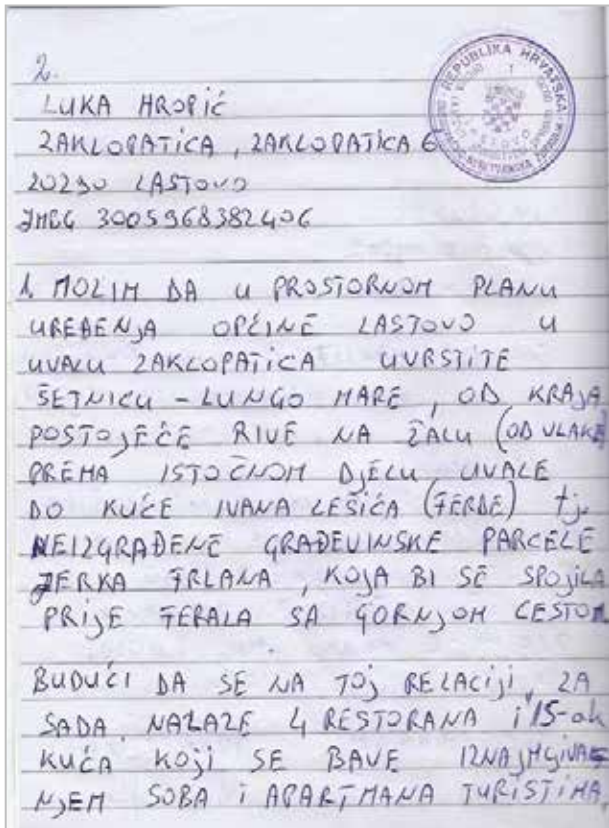 2.
REPUBLIKA HRVATSKA
LUKA HROPIĆ
ZAKLOPATICA, ZAKLOPATICA 6
20290 LASTOVO
JMBG 3005968382406
1. MOLIM DA U PROSTORNOM PLANU
UREĐENJA OPĆINE LASTOVO U
UVALU ZAKLOPATICA UVRSTITE
ŠETNICU - LUNGO MARE, OD KRAJA
POSTOJEĆE RIVE NA ŽALU (OD VLAKE
PREMA ISTOČNOM DJELU UVALE
DO KUĆE IVANA LEŠIĆA (FERDE) tj.
NEIZGRAĐENE GRAĐEVINSKE PARCELE
JERKA FRLANA, KOJA BI SE SPOJILA
PRIJE FERALA SA GORNJOM CESTOM
BUDUĆI DA SE NA TOJ RELACIJI, ZA
SADA, NALAZE 4 RESTORANA i 15-ak
KUĆA KOJI SE BAVE IZNAJMLJIVA
NJEM SOBA i APARTMANA TURISTIMA,